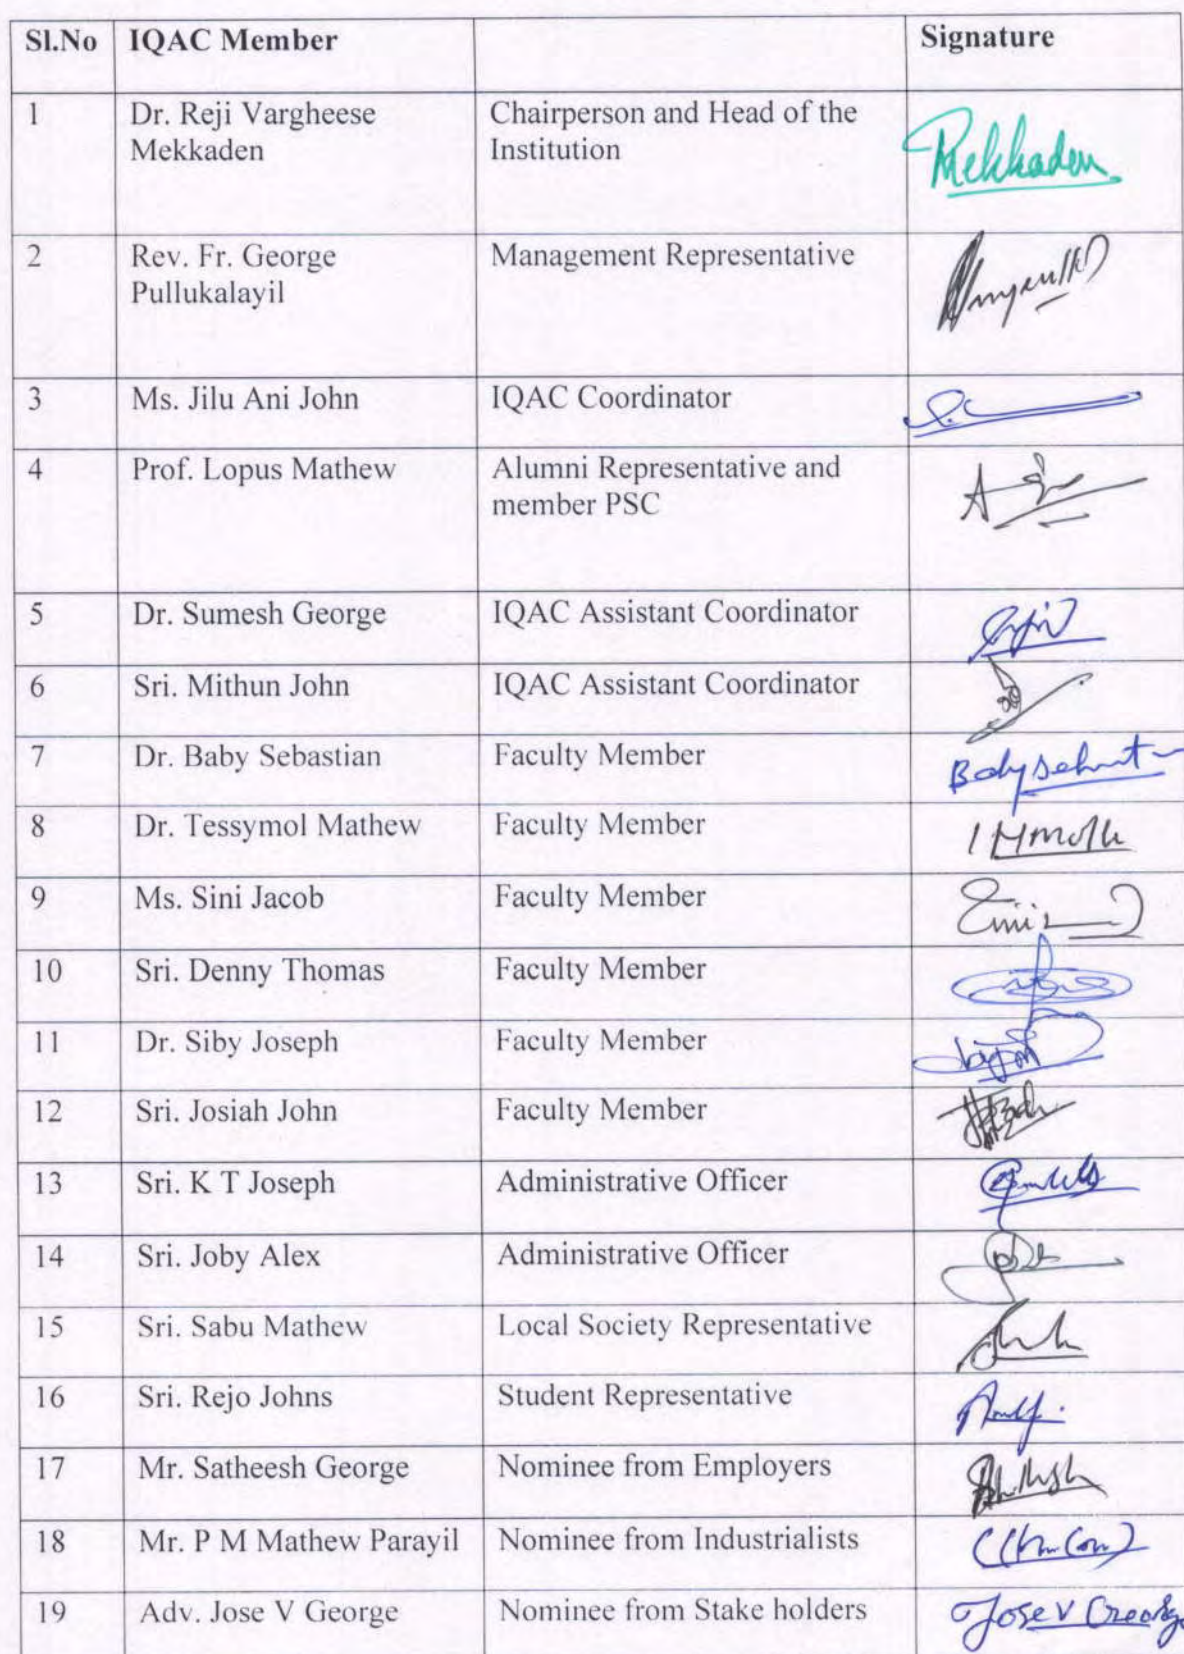 Sl.No IQAC Member Signature
1 Dr. Reji Vargheese Chairperson and Head of the
Mekkaden Institution Mekkaden
2 Rev. Fr. George Management Representative
Pullukalayil
3 Ms. Jilu Ani John IQAC Coordinator
4 Prof. Lopus Mathew Alumni Representative and
member PSC
5 Dr. Sumesh George IQAC Assistant Coordinator
6 Sri. Mithun John IQAC Assistant Coordinator
7 Dr. Baby Sebastian Faculty Member
8 Dr. Tessymol Mathew Faculty Member
9 Ms. Sini Jacob Faculty Member
10 Sri. Denny Thomas Faculty Member
11 Dr. Siby Joseph Faculty Member
12 Sri. Josiah John Faculty Member
13 Sri. K T Joseph Administrative Officer
14 Sri. Joby Alex Administrative Officer
15 Sri. Sabu Mathew Local Society Representative
16 Sri. Rejo Johns Student Representative
17 Mr. Satheesh George Nominee from Employers
18 Mr. P M Mathew Parayil Nominee from Industrialists
19 Adv. Jose V George Nominee from Stake holders Jose V George